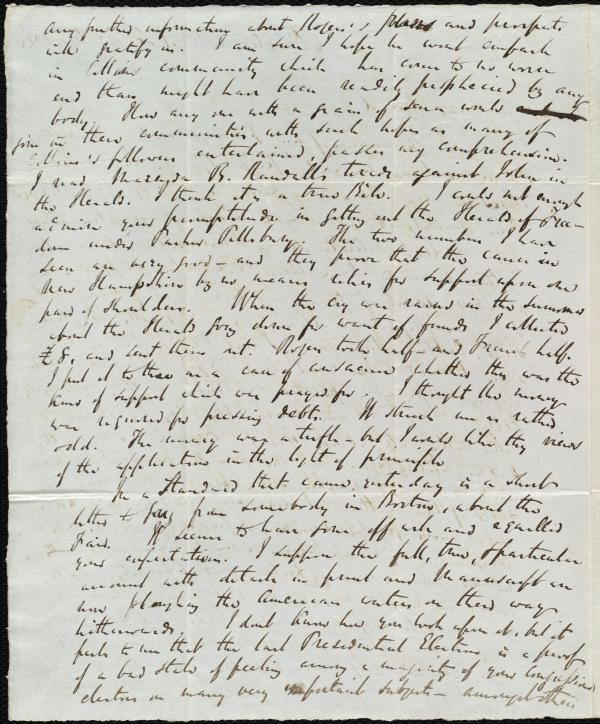 any further information about Rogers's plans and prospects
will gratify us. I am sure I hope he wont embark
in Collins community which has come to no worse
end than might have been readily prophecied by any
body. How any one with a grain of sense would
join in these communities with such hopes as many of
Collins's followers entertained, passes my comprehension.
I read Marenda B. Randall's tirade against John in
the Herald. I think it a true Bill. I could not enough
admire your promptitude in getting out the Herald of Free-
dom under Parker Pillsbury. The two numbers I have
seen are very good - and they prove that the cause in
New Hampshire by no means relies for support upon one
pair of shoulders. When the cry was raised in the summer
about the Herald going down for want of funds I collected
£8, and sent them out. Rogers took half - and French half.
I put it to them as a case of conscience whether this was the
kind of support which was prayed for. I thought the money
was required for pressing debts. It struck me as rather
odd. The money was a trifle - but I would like they views
of the application in the light of principle
In a Standard that came yesterday is a short
letter to Gay from somebody in Boston, about the
Fair. It seems to have gone off well and equalled
your expectations. I suppose the full, true, & particular
account with details in print and Manuscript are
now ploughing the American waters on their way
hitherwards. I dont know how you look upon it, but it
feels to me that the last Presidential Election is a proof
of a bad state of feeling among a majority of your Congressional
electors on many very important subjects - amongst others